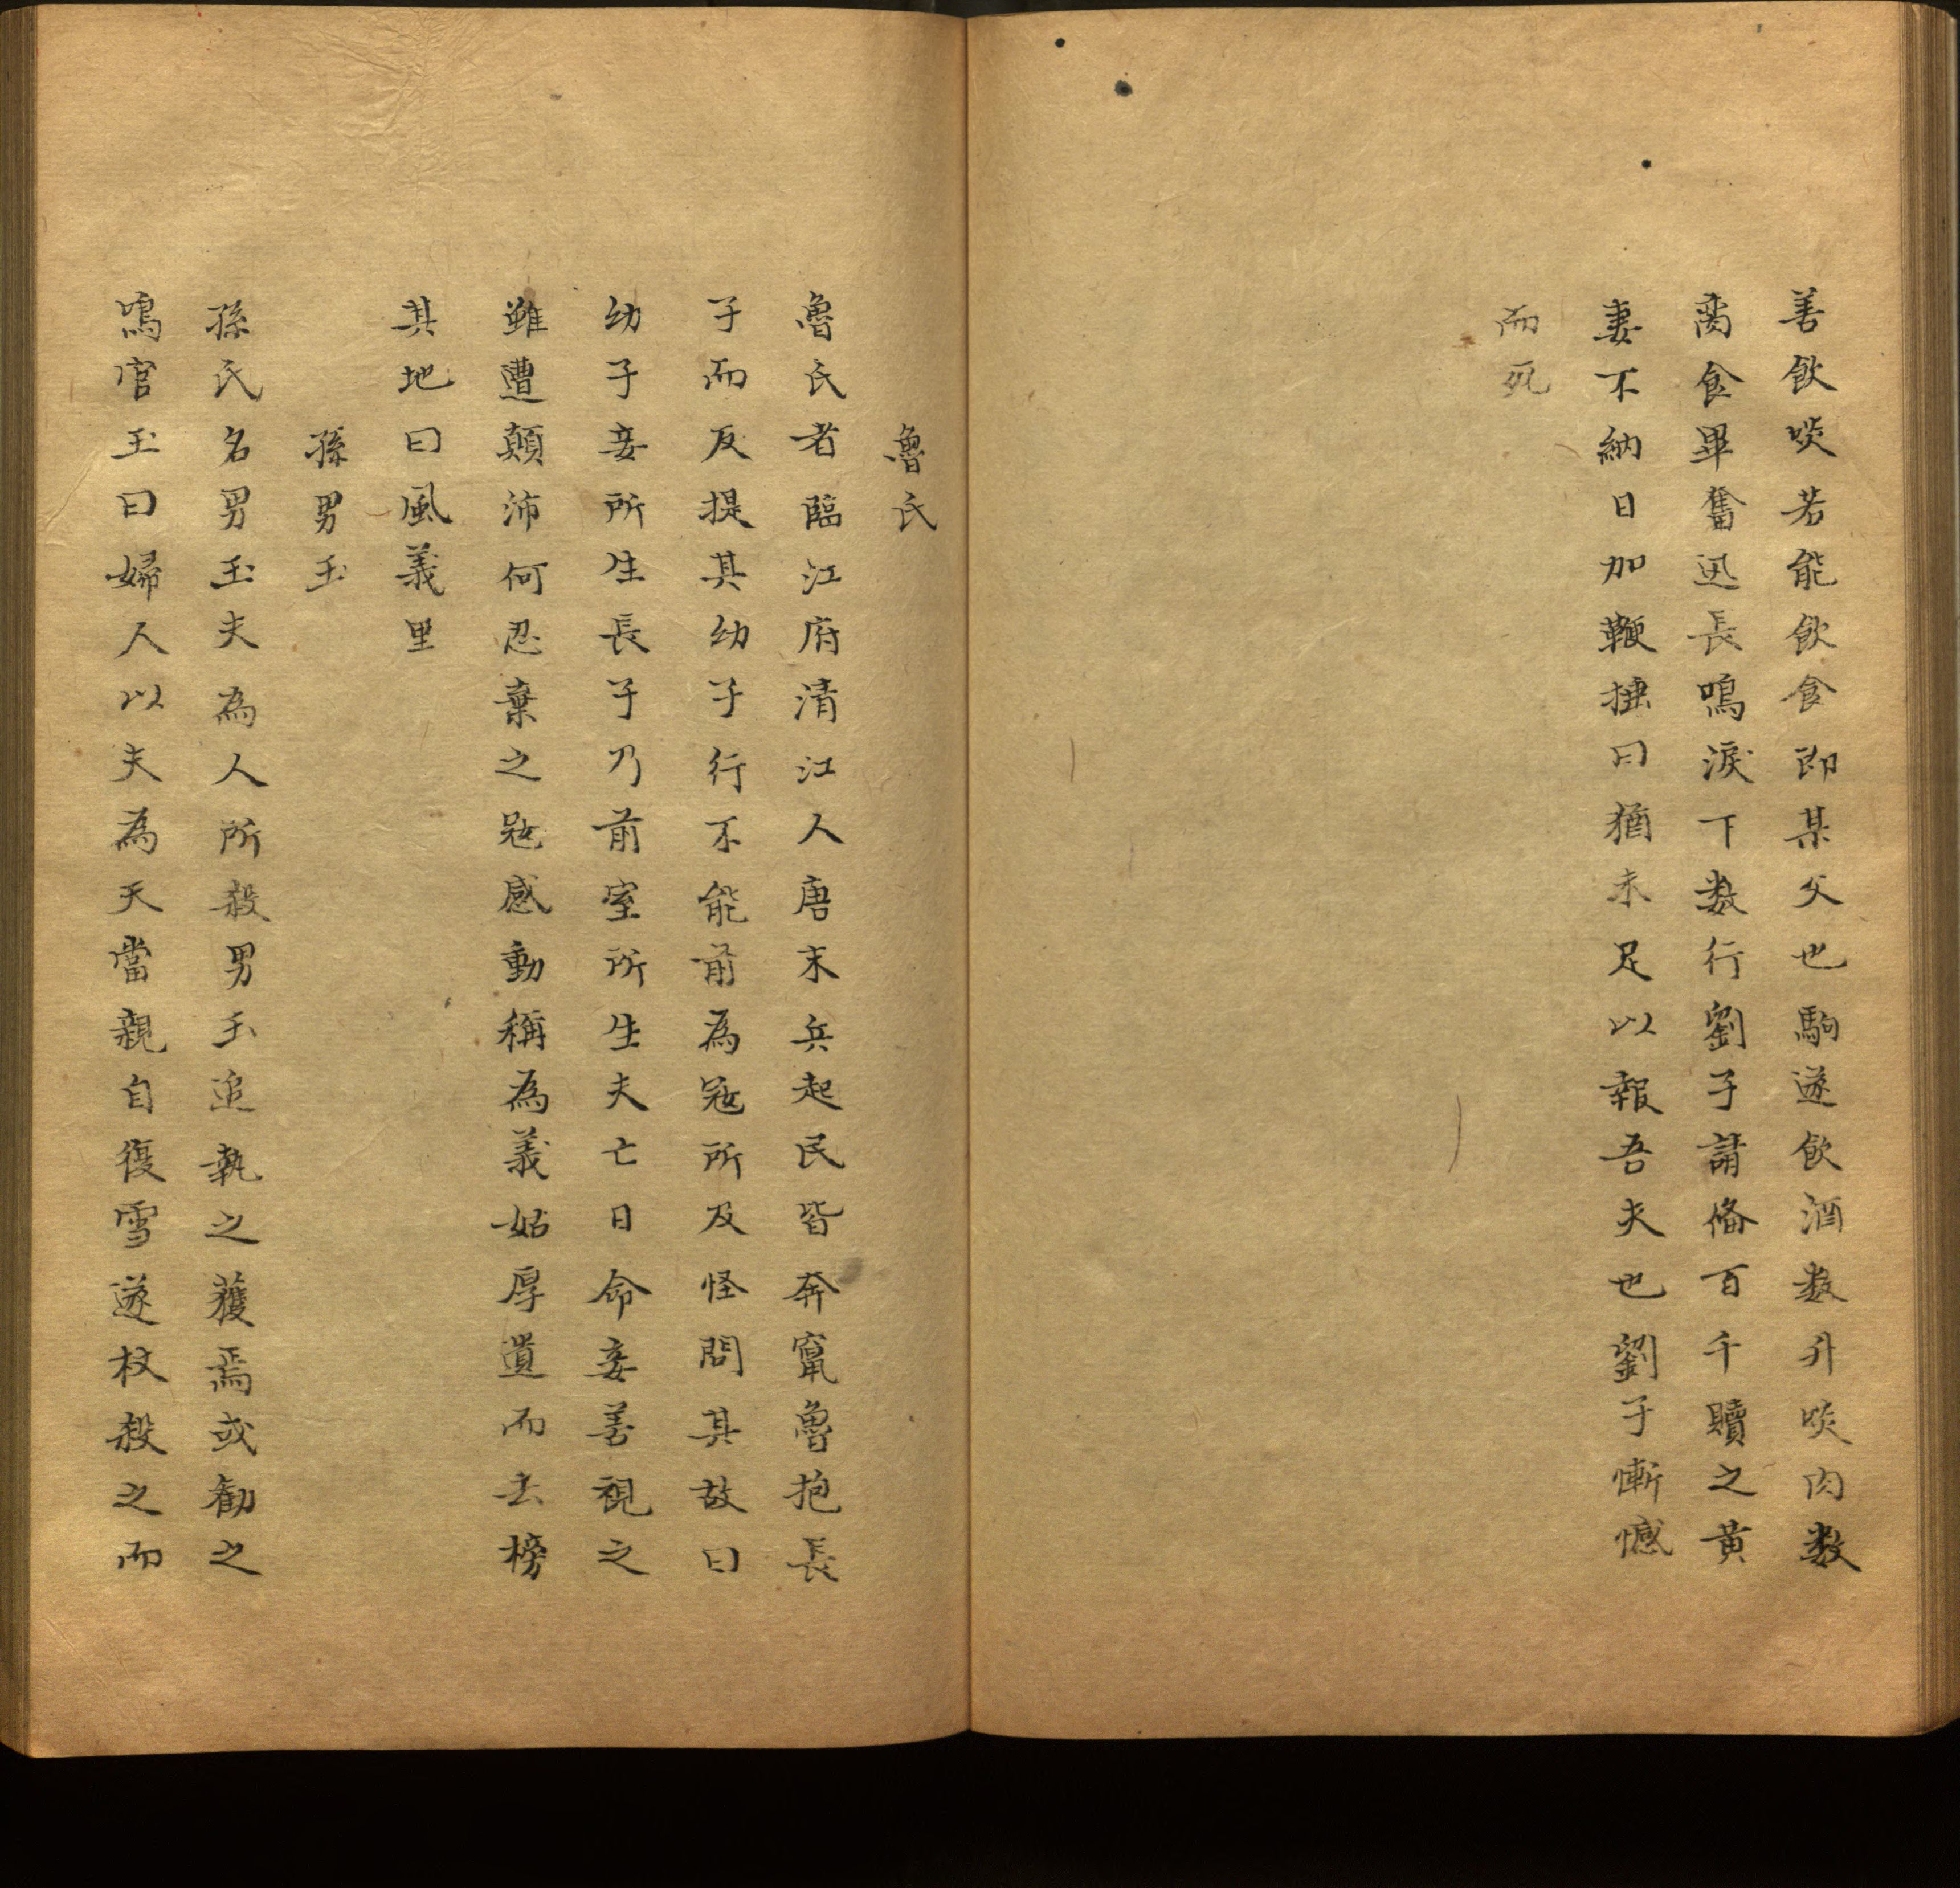 善飲啖若能飲食即某父也駒遂飲酒数升啖肉数
臠食畢奮迅長鳴淚下数行劉子請俻百千贖之黃
妻不納日加鞭捶曰猶未足以報吾夫也劉子慚憾
而死
魯氏
魯氏者臨江府清江人唐末兵起民皆奔竄魯抱長
子而反提其幼子行不能前為冦所及怪問其故曰
幼子妾所生長子乃前室所生夫亡日命妾善視之
雖遭顛沛何忍棄之冦感動稱為義姑厚遺而去榜
其地曰風義里
孫男玉
孫氏名男玉夫為人所殺男玉追執之獲焉或勸之
鳴官玉曰婦人以夫為天當親自復雪遂杖殺之而